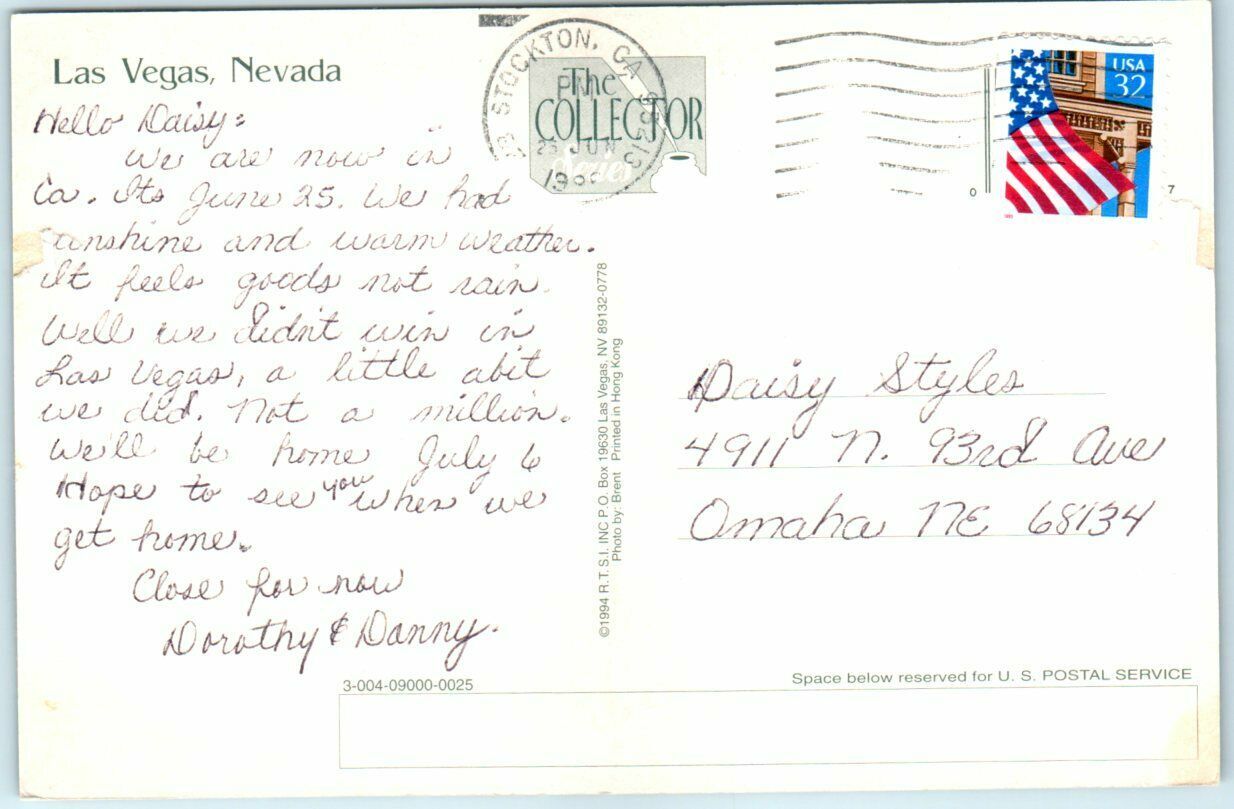 Las Vegas, Nevada
Hello Daisy:
We are now in
Ca. Its June 25. We had
sunshine and warm weather.
It feels goods not rain.
Well we didn't win in
Las Vegas, a little abit
we did. Not a million.
We'll be home July 6
Hope to see you when we
get home.
Close for now
Dorothy & Danny.
3-004-09000-0025
The
COLLECTOR
Series
STOCKTON, CA
PM
JUN
©1994 R.T.S.I. INC P.O. Box 19630 Las Vegas, NV 89132-0778
Photo by: Brent Printed in Hong Kong
USA
32
0
7
Daisy Styles
4911 N. 93rd Ave
Omaha NE 68134
Space below reserved for U. S. POSTAL SERVICE